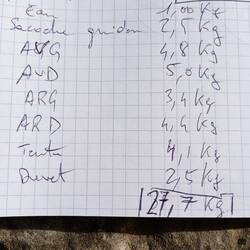 Eau 1,00 Kg
Sacoche guidon 2,5 Kg
AVG 4,8 Kg
AVD 5,0 Kg
ARG 3,4 Kg
ARD 4,4 Kg
Tente 4,1 Kg
Duvet 2,5 Kg
27,7 Kg